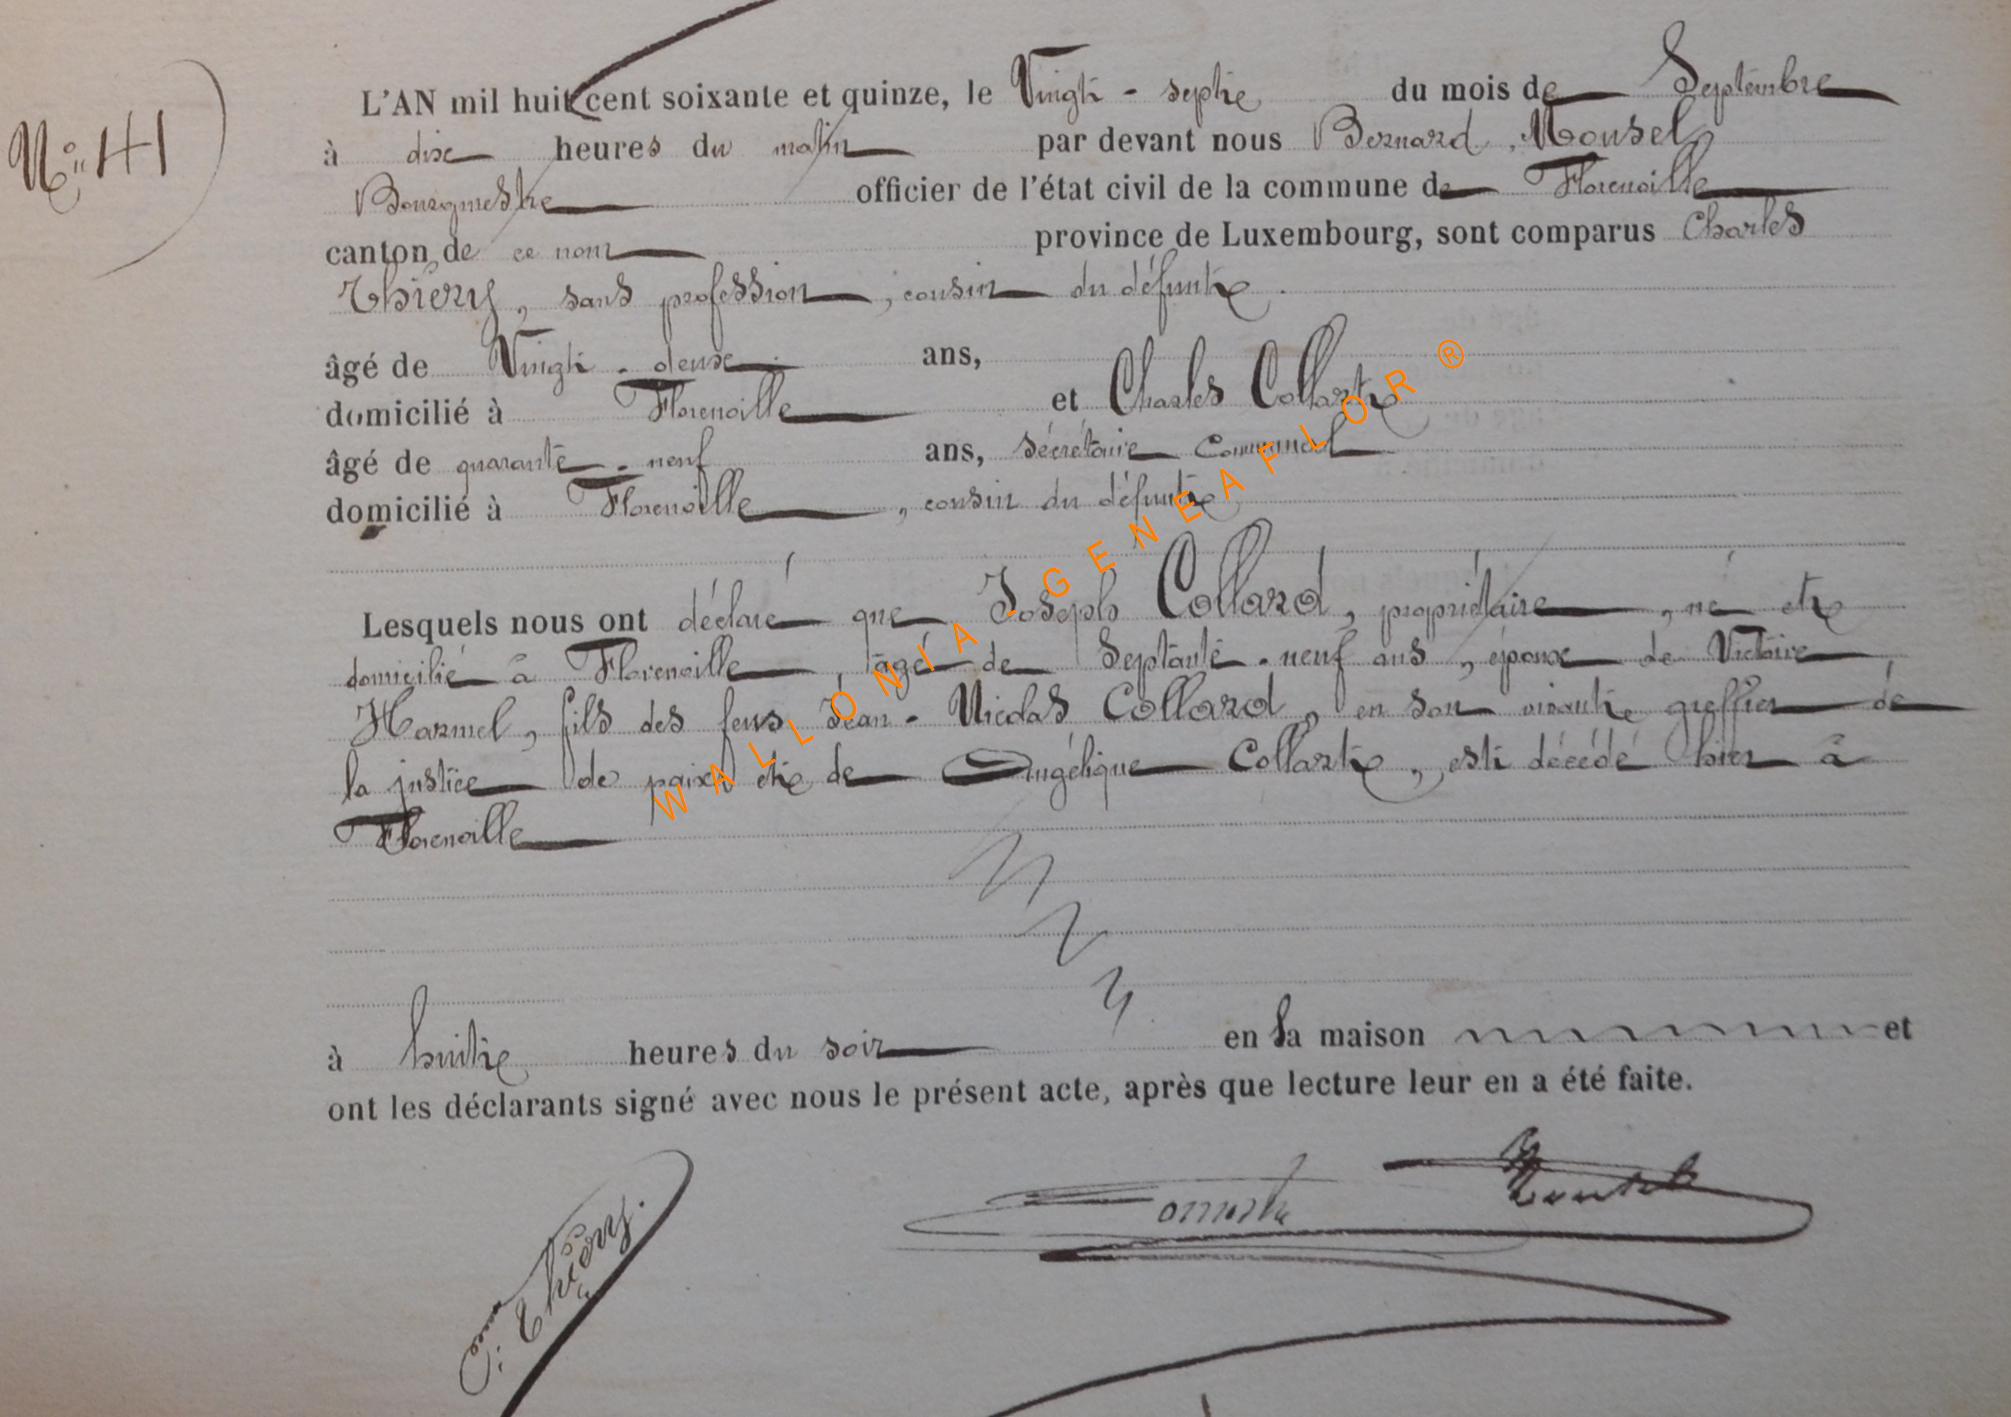 N° 41
L'AN mil huit cent soixante et quinze, le Vingt-sept du mois de Septembre
à dix heures du matin par devant nous Bernard Mousel,
Bourgmestre officier de l'état civil de la commune de Florenville
canton de ce nom province de Luxembourg, sont comparus Charles
Thiéry, sans profession, cousin du défunt.
âgé de Vingt-deux ans,
domicilié à Florenville et Charles Collart
âgé de quarante-neuf ans, secrétaire communal
domicilié à Florenville, cousin du défunt
Lesquels nous ont déclaré que Joseph Collard, propriétaire, né et
domicilié à Florenville, âgé de Septante-neuf ans, époux de Victoire
Harmel, fils des feus Jean-Nicolas Collard, en son vivant greffier de
la justice de paix et de Angélique Collart, est décédé hier à
Florenville
à huit heures du soir en sa maison et
ont les déclarants signé avec nous le présent acte, après que lecture leur en a été faite.
C. Thiéry.
Mousel
WALLONIA - GENEAFLOR ®